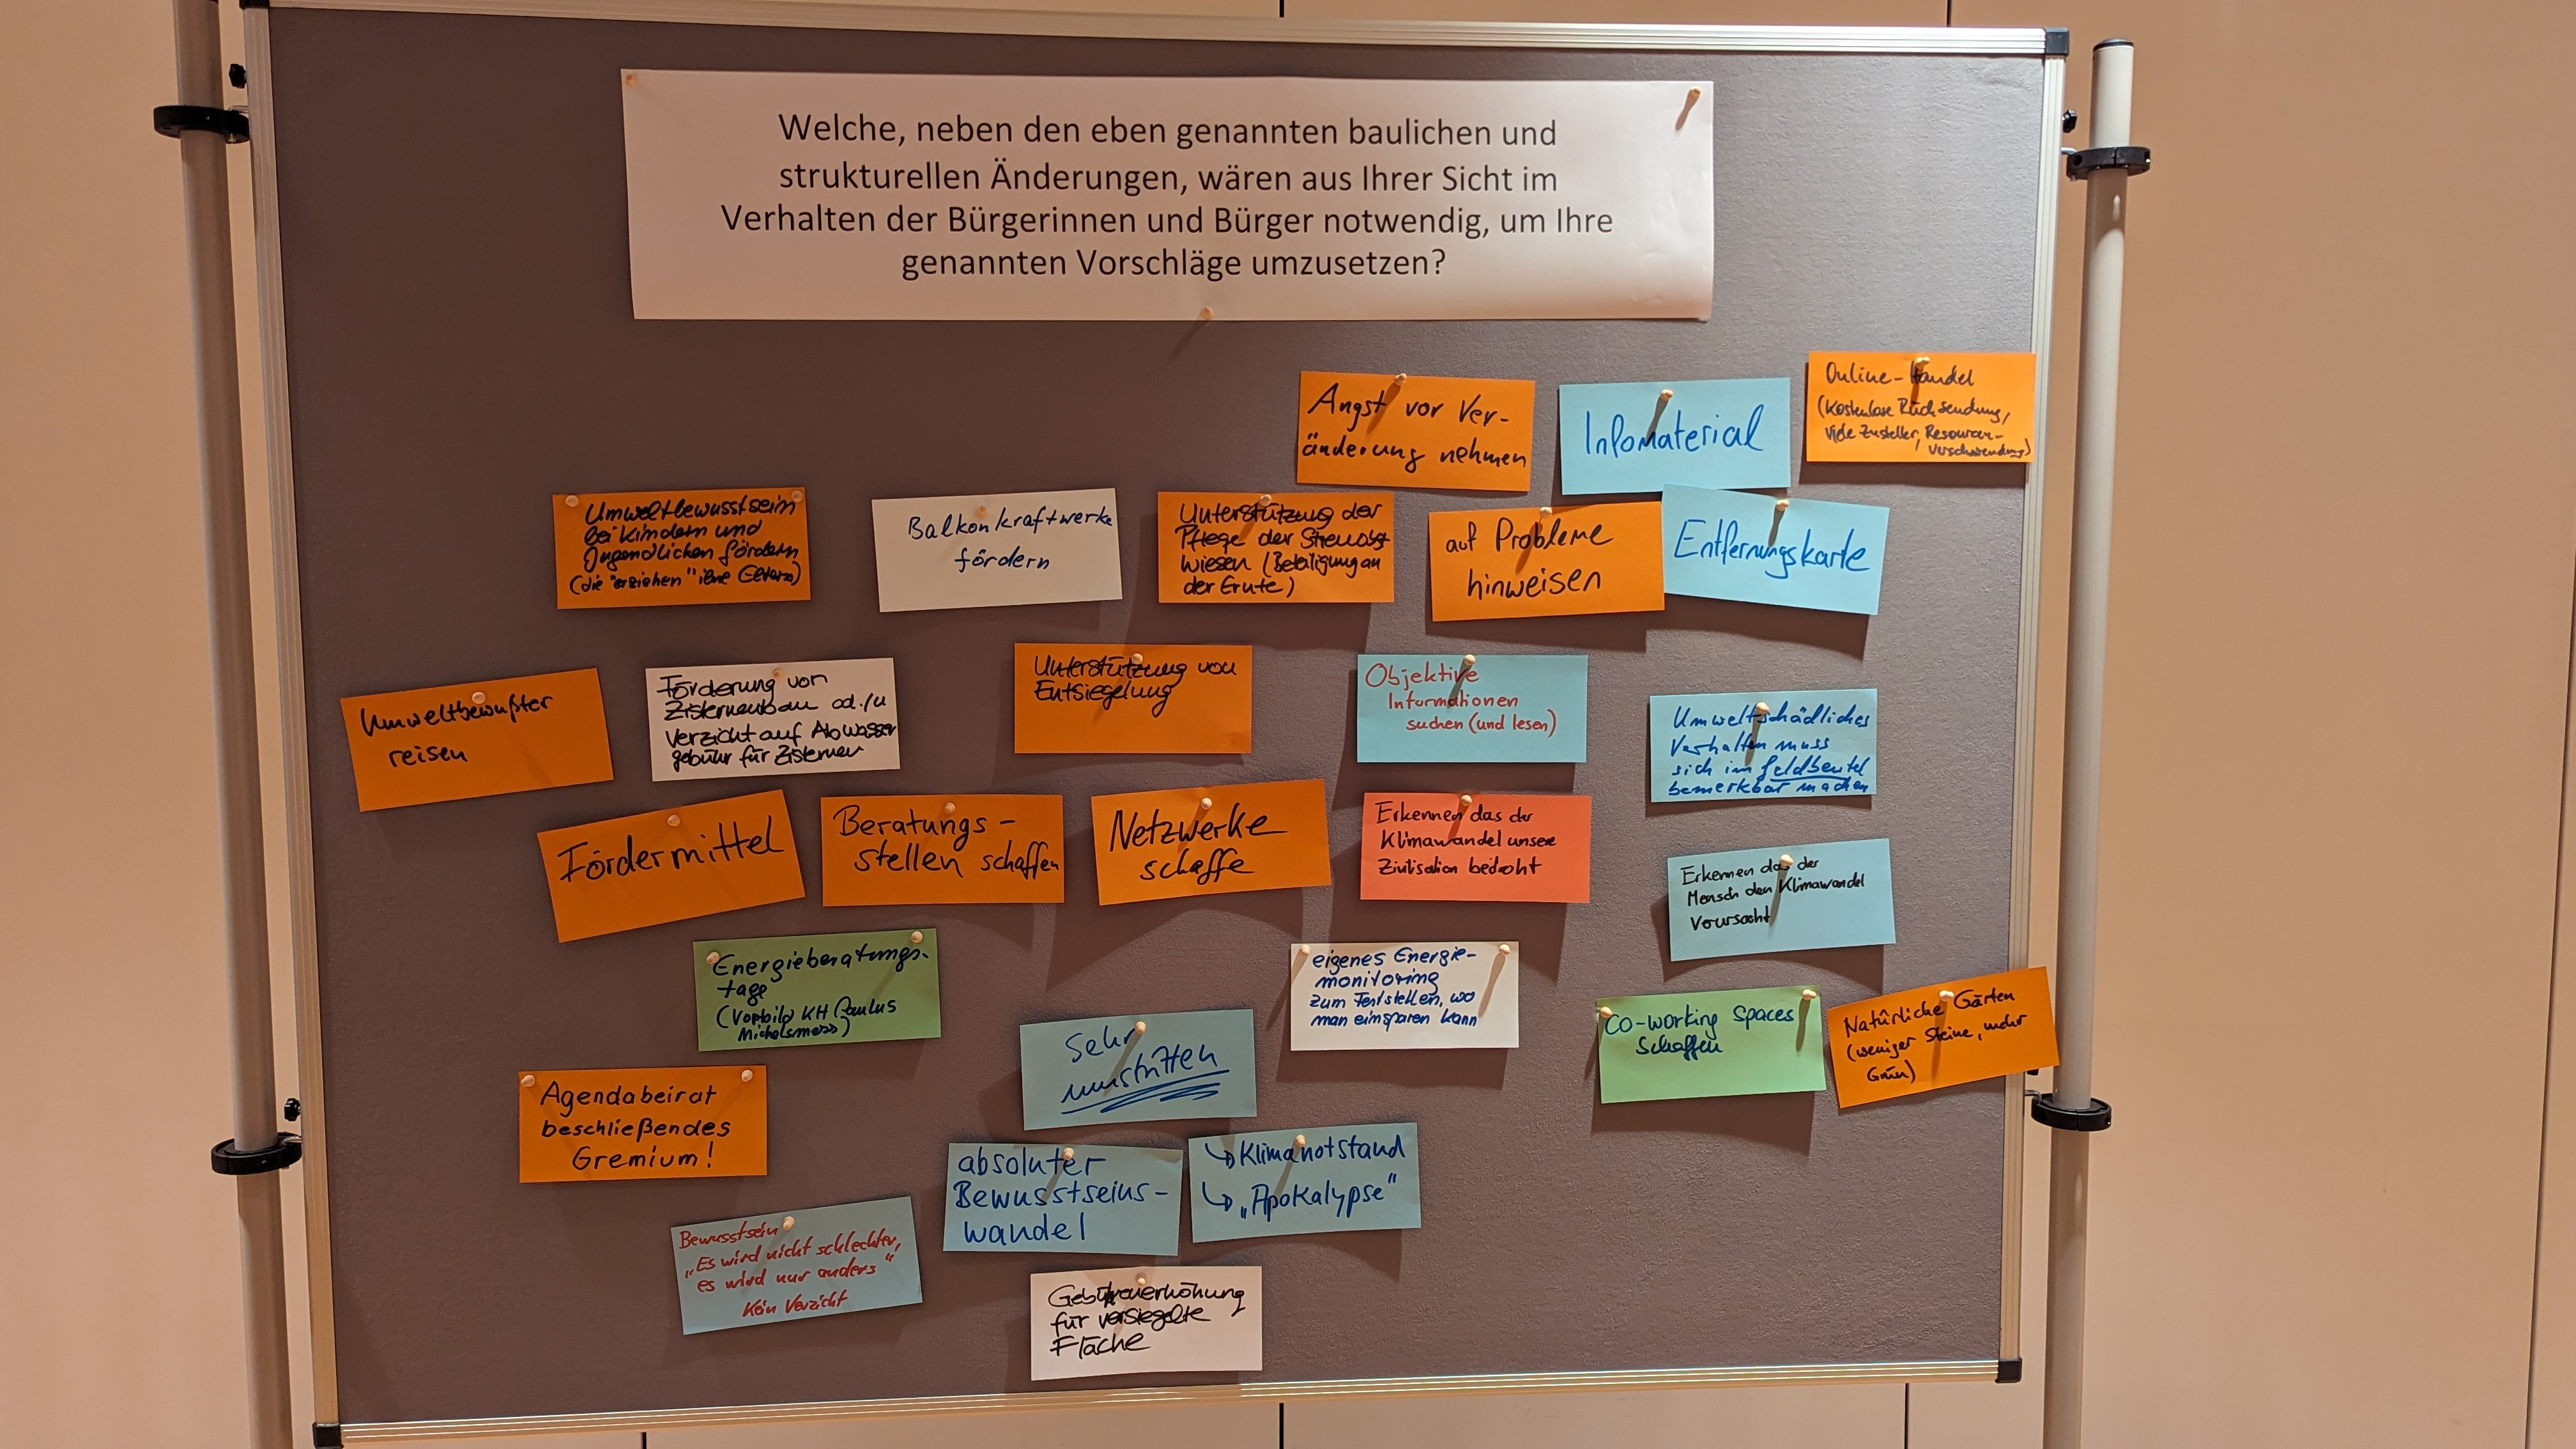 Welche, neben den eben genannten baulichen und
strukturellen Änderungen, wären aus Ihrer Sicht im
Verhalten der Bürgerinnen und Bürger notwendig, um Ihre
genannten Vorschläge umzusetzen?
Angst vor Ver-
änderung nehmen
Infomaterial
Online-Handel
(kostenlose Rücksendung,
viele Zusteller, Resourcen-
verschwendung)
Umweltbewusstsein
bei Kindern und
Jugendlichen fördern
(die "erziehen" ihre Eltern)
Balkonkraftwerke
fördern
Unterstützung der
Pflege der Streuobst
wiesen (Beteiligung an
der Ernte)
auf Probleme
hinweisen
Entfernungskarte
Umweltbewußter
reisen
Förderung von
Zisternenbau od./u
Verzicht auf Abwasser
gebühr für Zisternen
Unterstützung von
Entsiegelung
Objektive
Informationen
suchen (und lesen)
Umweltschädliches
Verhalten muss
sich im Geldbeutel
bemerkbar machen
Fördermittel
Beratungs-
stellen schaffen
Netzwerke
schaffe
Erkennen das der
Klimawandel unsere
Zivilisation bedroht
Erkennen das der
Mensch den Klimawandel
verursacht
Energieberatungs-
tage
(Vorbild KH Paulus
Michelsmess)
eigenes Energie-
monitoring
zum Feststellen, wo
man einsparen kann
Co-working Spaces
schaffen
Natürliche Gärten
(weniger Steine, mehr
Grün)
Sehr
umstritten
Agendabeirat
beschließendes
Gremium!
absoluter
Bewusstseins-
wandel
↳ Klimanotstand
↳ „Apokalypse"
Bewusstsein
„Es wird nicht schlechter,
es wird nur anders"
Kein Verzicht
Gebührenerhöhung
für versiegelte
Fläche